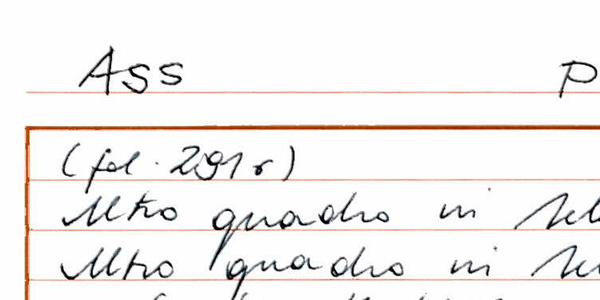 Ass P
(fol. 291r)
Altro quadro in tel
Altro quadro in te